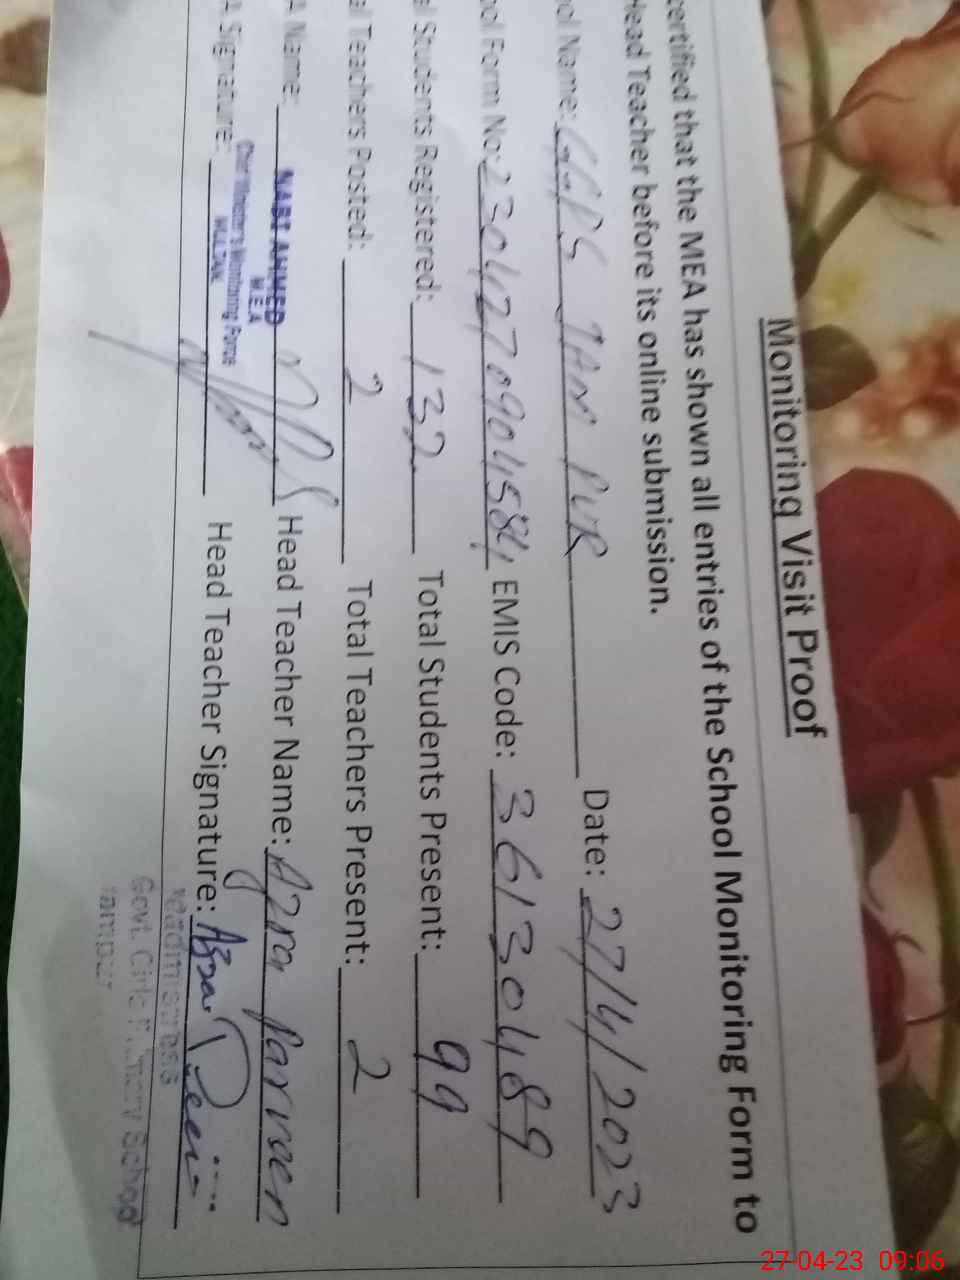 Monitoring Visit Proof
certified that the MEA has shown all entries of the School Monitoring Form to
Head Teacher before its online submission.
ool Name: GGPS JAM PUR Date: 27/4/2023
ool Form No: 230427090458 EMIS Code: 36130489
l Students Registered: 132 Total Students Present: 99
al Teachers Posted: 2 Total Teachers Present: 2
A Name: NABI AHMED Head Teacher Name: Azra Parveen
M.E.A
Chief Minister's Monitoring Force
MULTAN.
A Signature: Head Teacher Signature: Azra
Headmistress
Govt. Girls Primary School
27-04-23 09:06